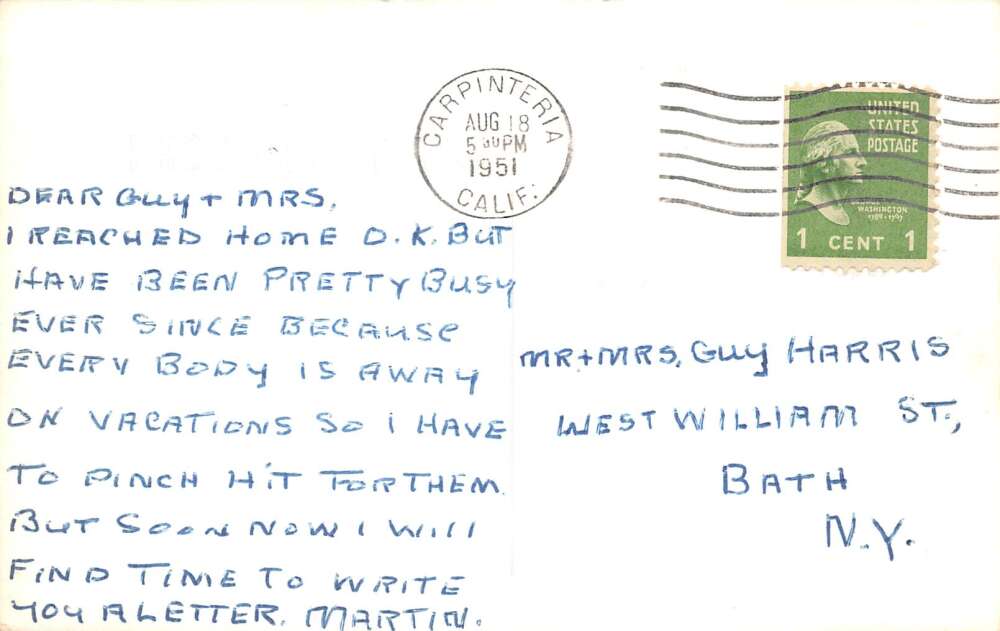 CARPINTERIA
AUG 18
5 PM
1951
CALIF.
UNITED
STATES
POSTAGE
WASHINGTON
1789-1797
1 CENT 1
DEAR GUY + MRS.
I REACHED HOME O.K. BUT
HAVE BEEN PRETTY BUSY
EVER SINCE BECAUSE
EVERY BODY IS AWAY
ON VACATIONS SO I HAVE
TO PINCH HIT FOR THEM.
BUT SOON NOW I WILL
FIND TIME TO WRITE
YOU A LETTER. MARTIN.
MR + MRS, GUY HARRIS
WEST WILLIAM ST.,
BATH
N.Y.